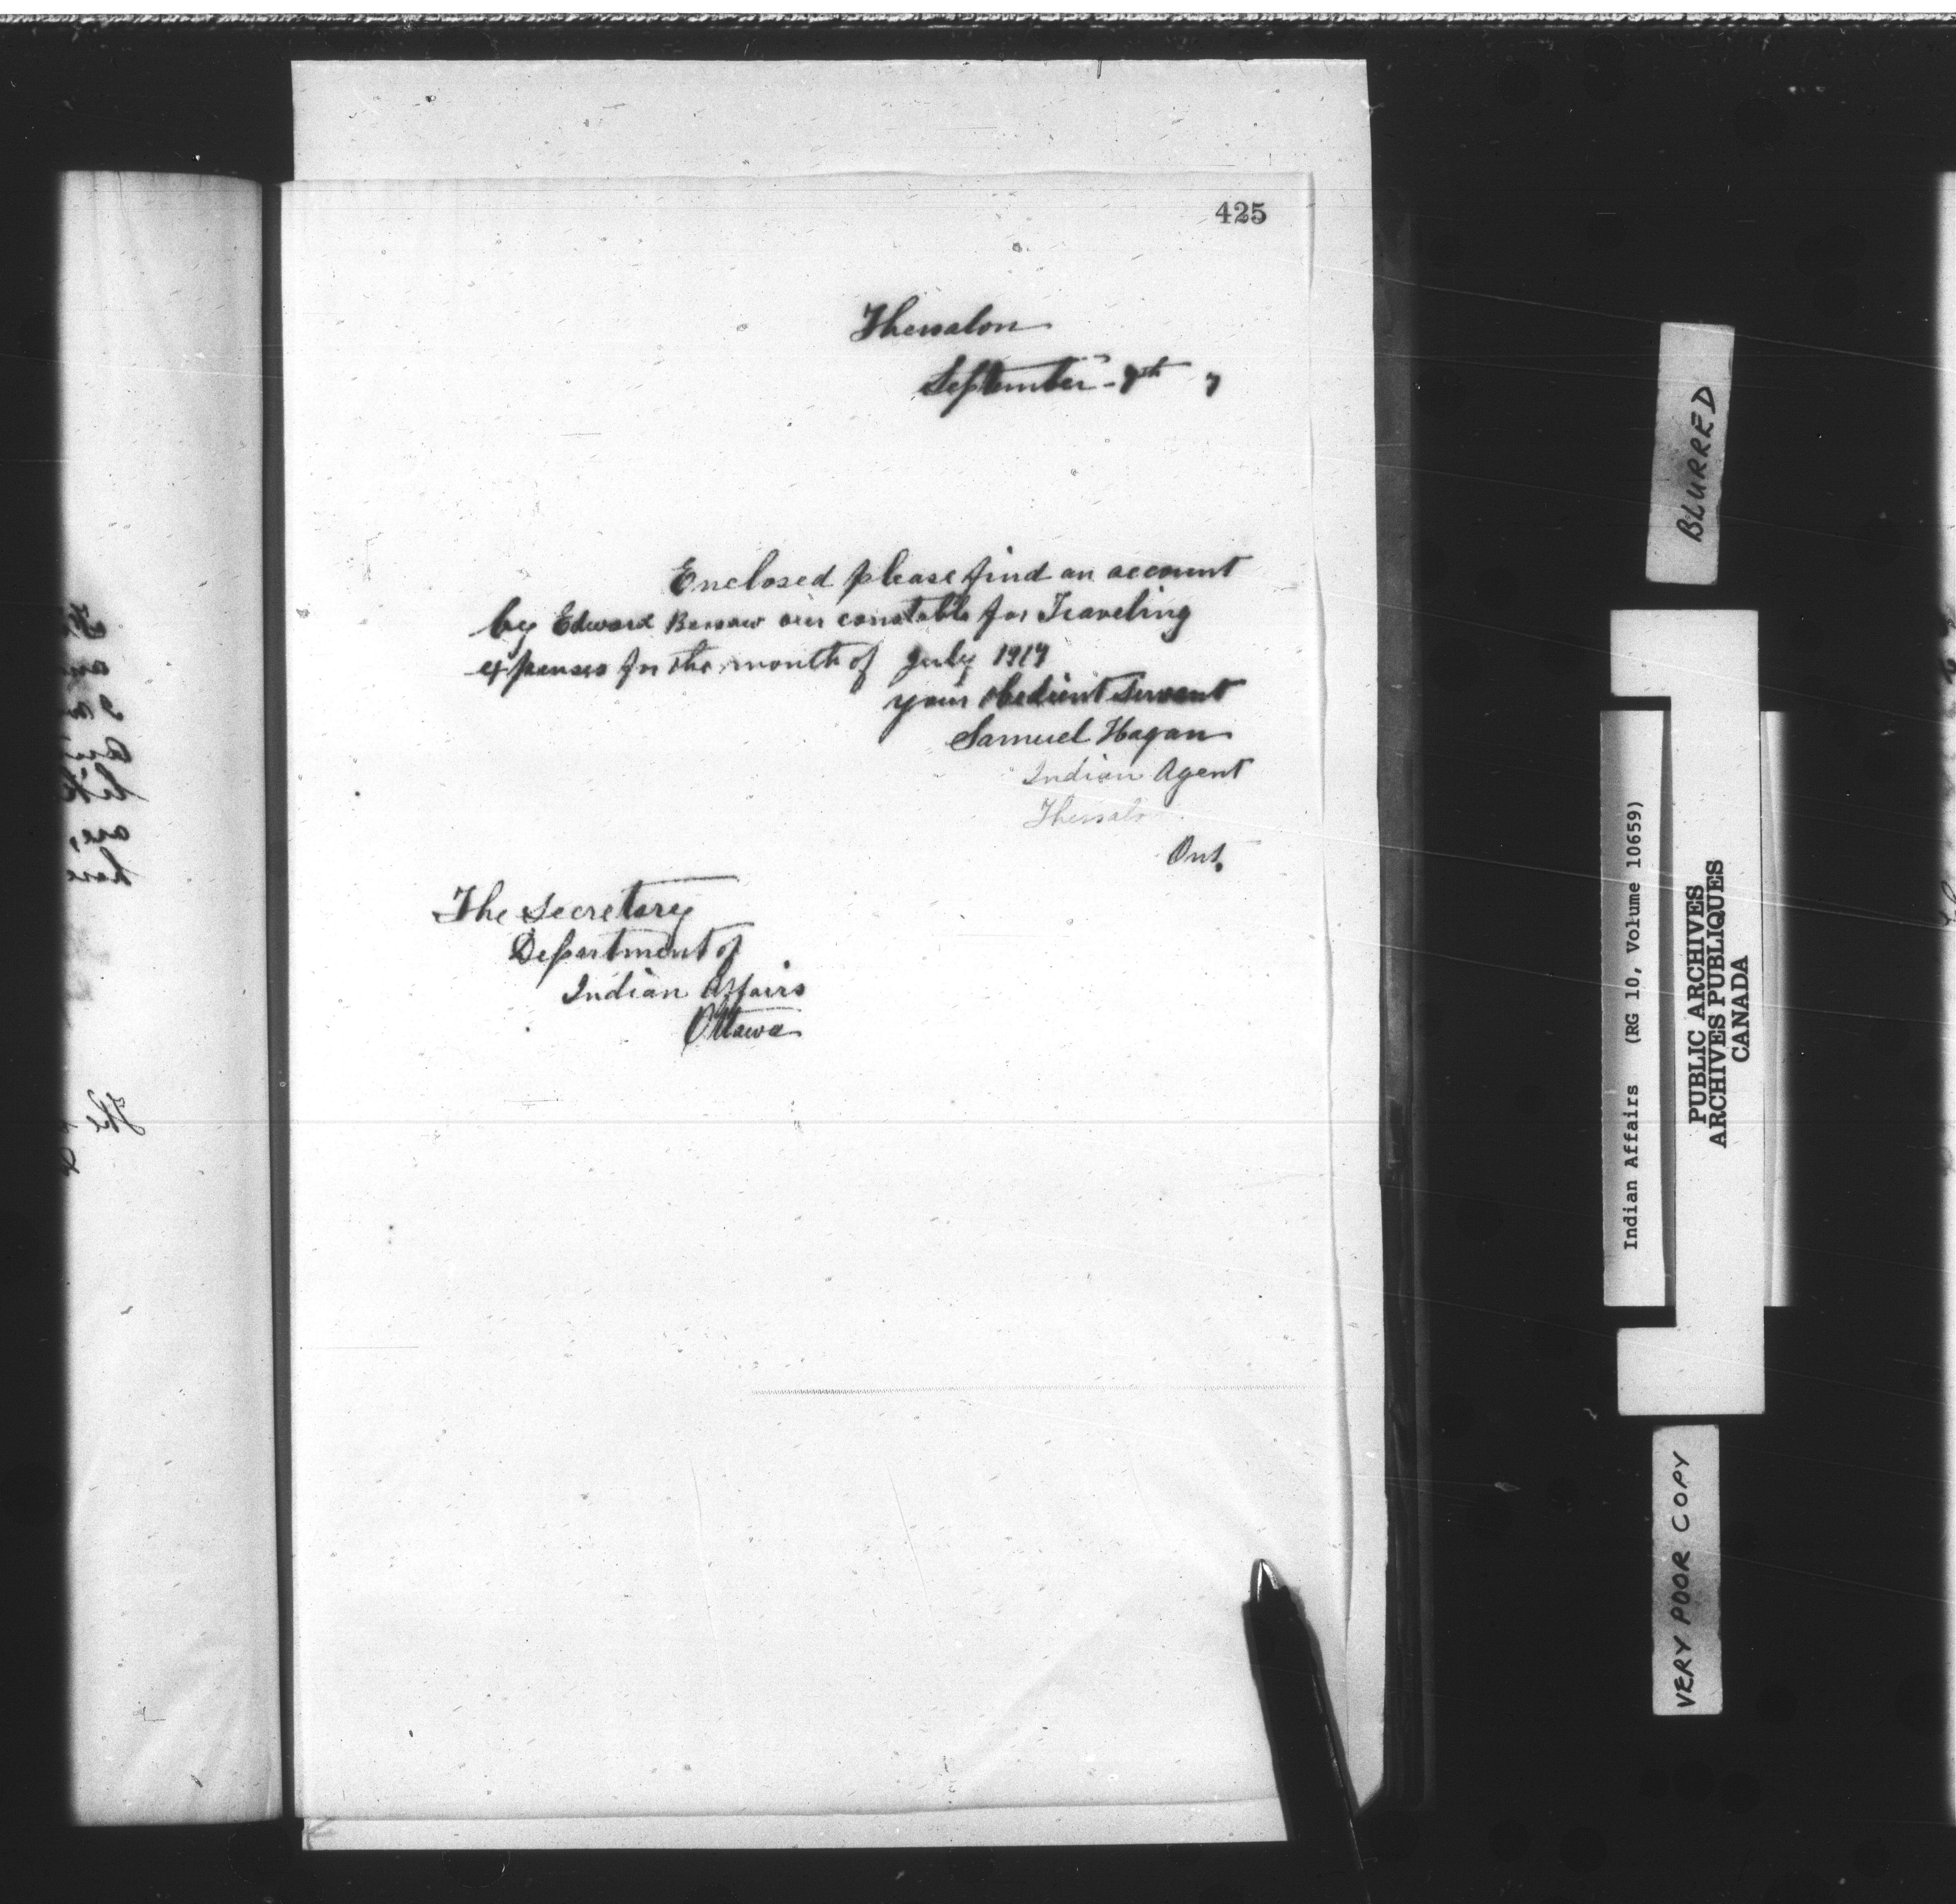 425
Thessalon
September - 7th 7
Enclosed please find an account
by Edward our constable for Traveling
expenses for the month of July 1917
your obedient Servant
Samuel Hagan
Indian Agent
Thessalon
Ont.
The Secretary
Department of
Indian Affairs
Ottawa
BLURRED
Indian Affairs (RG 10, Volume 10659)
PUBLIC ARCHIVES
ARCHIVES PUBLIQUES
CANADA
VERY POOR COPY